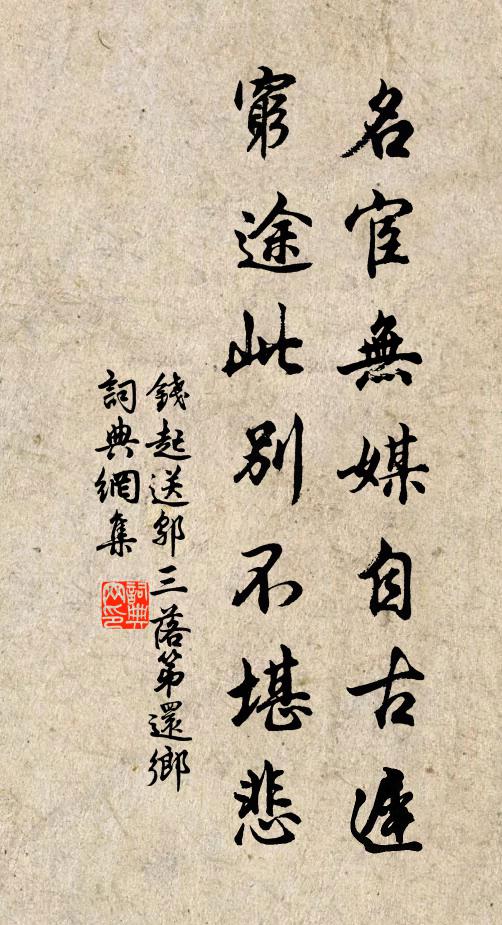 名宦無媒自古遲
窮途此別不堪悲
錢起送鄔三落第還鄉
詞典網集
詞典网印